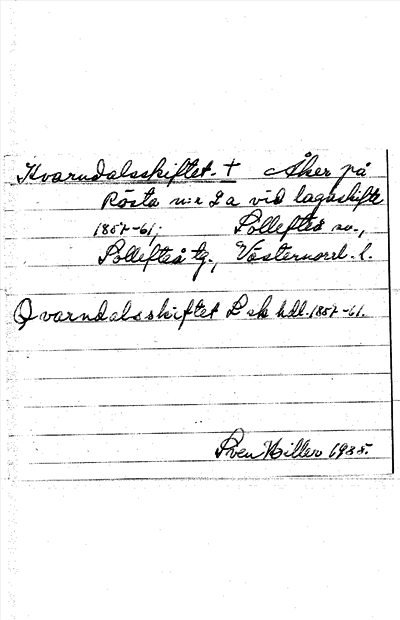 Kvarndalsskiftet. † Åker på
Rösta n:r 2 a vid lagaskifte
1857-61; Sollefteå sn.,
Sollefteå tg., Västernorrl. l.
Qvarndalsskiftet L sk hdl. 1857-61.
Sven Hiller 1935.